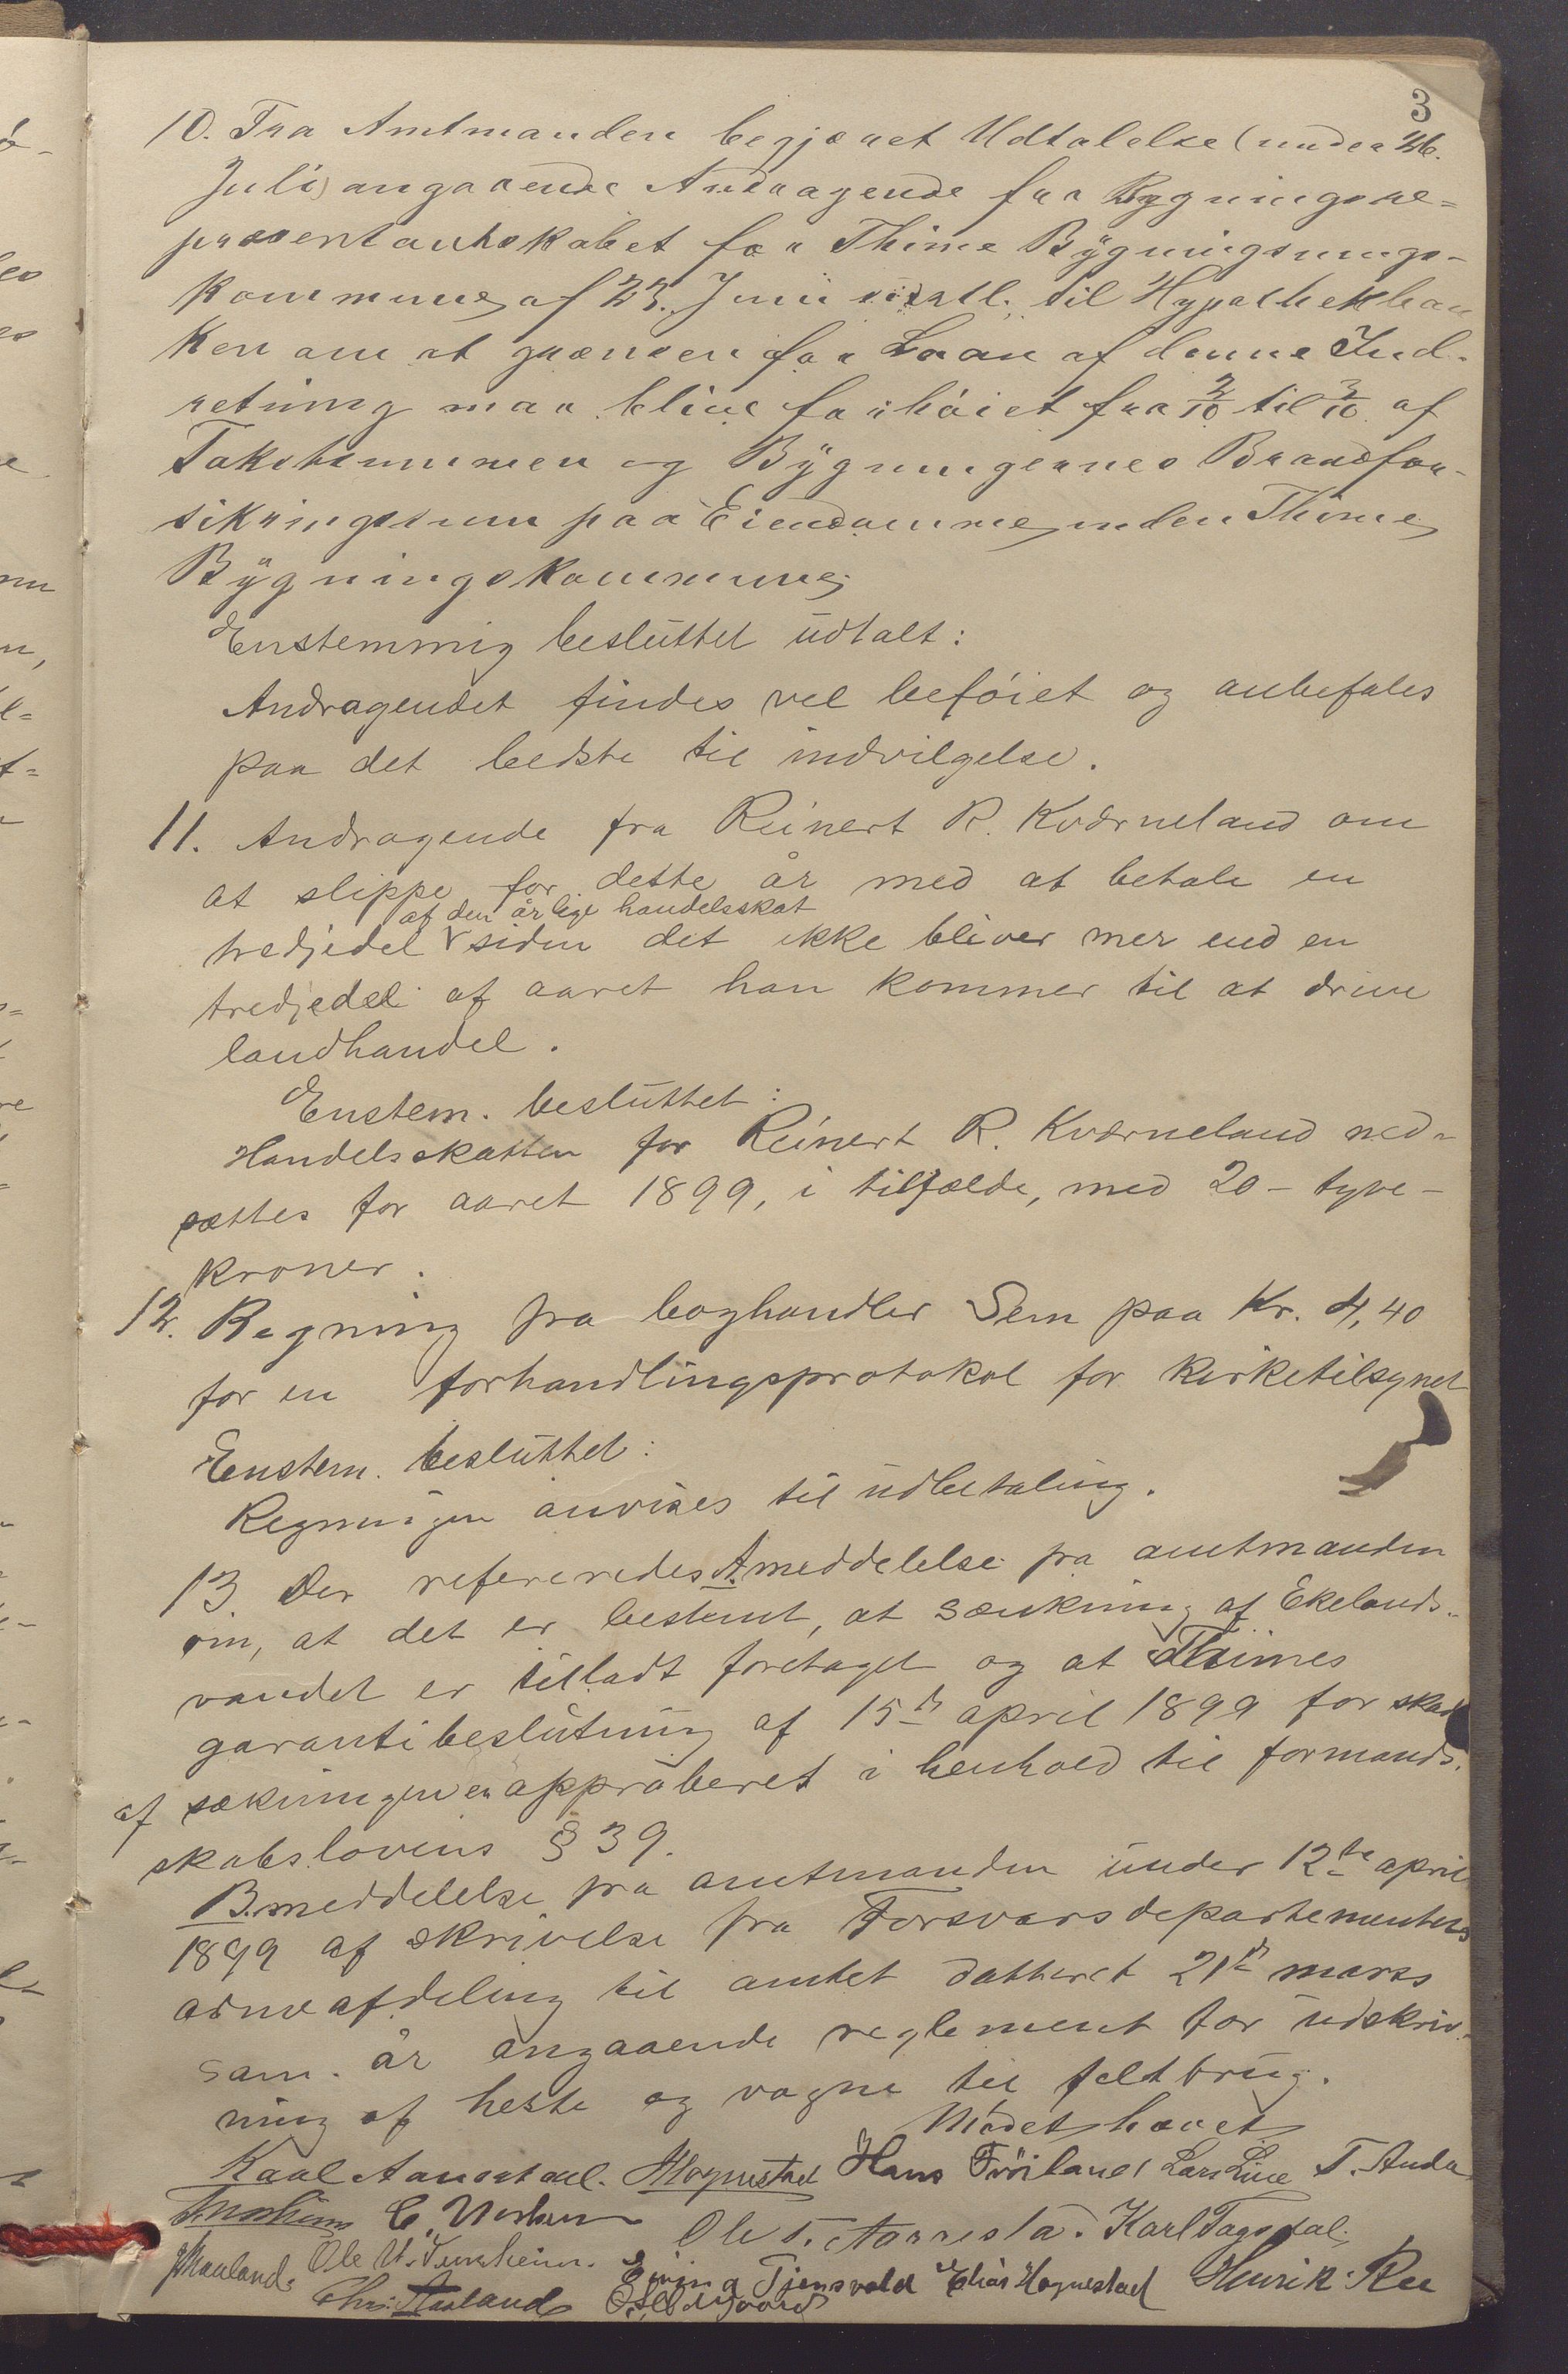 3
10. Fra Amtmanden begjæret Udtalelse (under 26.
Juli) angaaende Andragende fra Bygningsre=
præsentantskabet for Thime Bygningsnings-
kommune af 23. Juni sidstl. til Hypothekban
ken om at grænsen for Laan af denne Ind-
retning maa blive forhöiet fra 2/10 til 3/10 af
Takstsummen og Bygningernes Brandfor-
sikringssum paa Eiendomme inden Thime
Bygningskommune.
Enstemmig besluttet udtalt:
Andragendet findes vel beföiet og anbefales
paa det bedste til indvilgelse.
11. Andragende fra Reinert R. Kværneland om
at slippe for dette år med at betale en
af den årlige handelsskat
tredjedel siden det ikke bliver mer end en
tredjedel af aaret han kommer til at drive
landhandel.
Enstem. besluttet:
Handelsskatten for Reinert R. Kværneland ned-
sættes for aaret 1899, i tilfælde, med 20 - tyve -
kroner.
12. Regning fra boghandler Sem paa Kr. 4,40
for en forhandlingsprotokol for kirketilsynet
Enstem. besluttet:
Regningen anvises til udbetaling.
13. Der refereredes A. meddelelse fra amtmanden
om, at det er bestemt, at sænkning af Ekelands-
vandet er tilladt foretaget og at Thimes
garantibeslutning af 15de april 1899 for skade
af sækningen er approberet i henhold til formand-
skabslovens § 39.
B. meddelelse fra amtmanden under 12te april
1899 af skrivelse fra Forsvarsdepartementets
armeafdeling til amtet datteret 21de mars
sam. år angaaende reglement for udskriv-
ning af heste og vogne til feltbrug.
Mödet hævet
Karl Aanestad. Hognestad Hans Fröiland Lars Line T. Anda
Ole T. Aarrestad. Karl Tagsdal.
Maaland. Ole U. Tunheim. Eivind Tjensvold Elias Hognestad Henrik Ree
Chr. Aasland O. Aadgaard